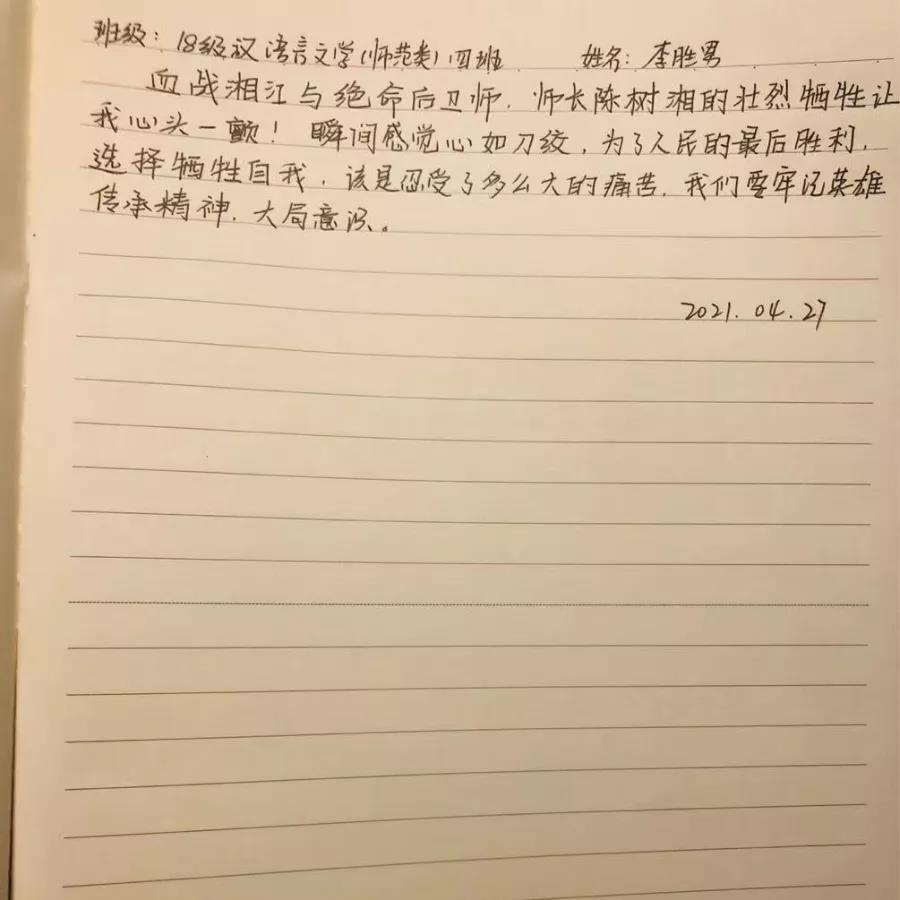 班级：18级汉语言文学(师范类)四班 姓名：李胜男
血战湘江与绝命后卫师，师长陈树湘的壮烈牺牲让
我心头一颤！瞬间感觉心如刀绞，为了人民的最后胜利，
选择牺牲自我，该是忍受了多么大的痛苦，我们要牢记英雄
传承精神，大局意识。
2021.04.27